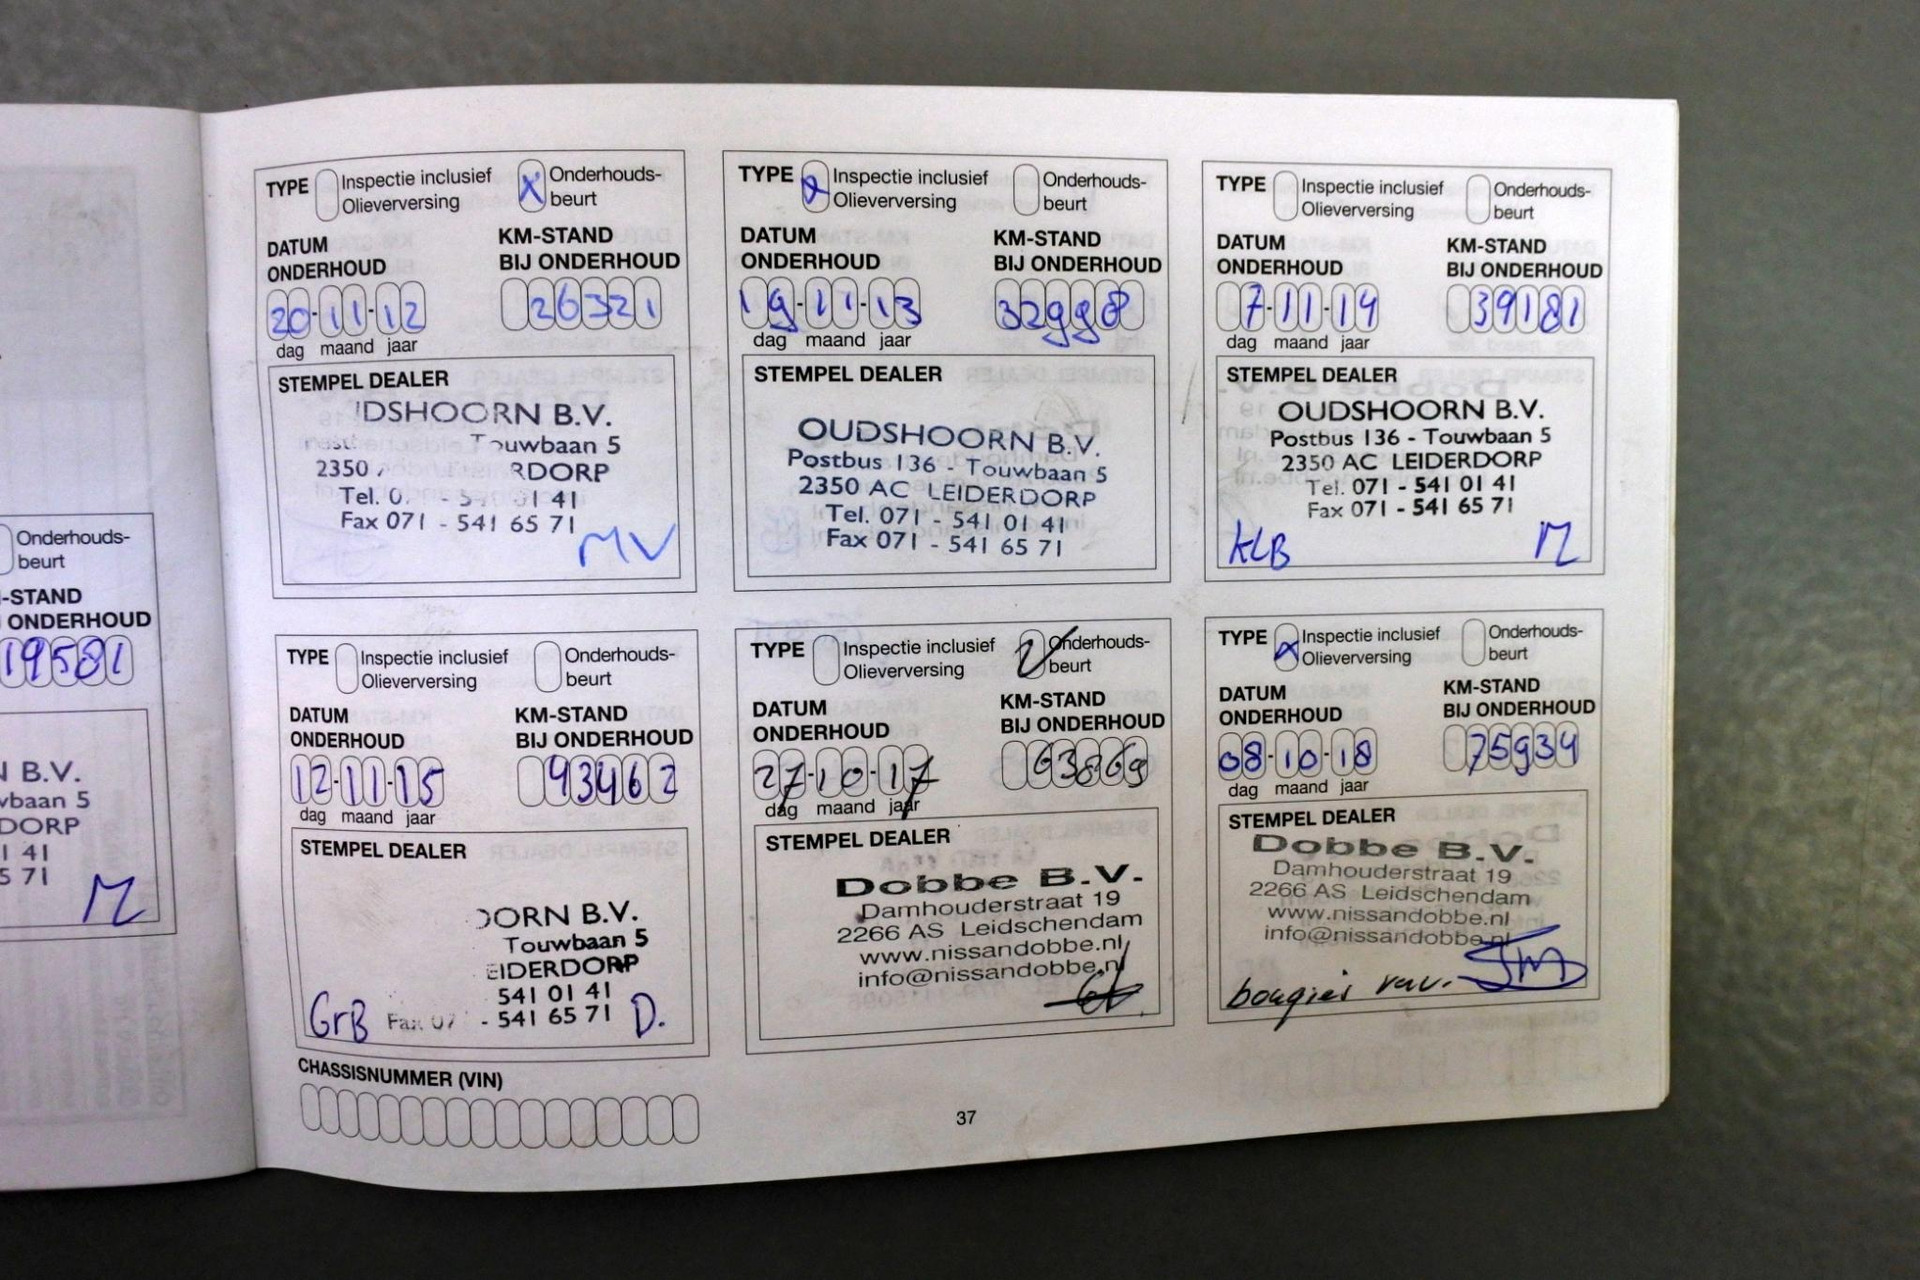 Onderhouds-
beurt
-STAND
ONDERHOUD
19581
B.V.
5
DORP
41
71
M
TYPE Inspectie inclusief Olieverversing X Onderhouds-beurt
DATUM ONDERHOUD
KM-STAND BIJ ONDERHOUD
20-11-12 26321
dag maand jaar
STEMPEL DEALER
DSHOORN B.V.
Touwbaan 5
2350 RDORP
Tel. 0 01 41
Fax 071 - 541 65 71
MV
TYPE X Inspectie inclusief Olieverversing Onderhouds-beurt
DATUM ONDERHOUD
KM-STAND BIJ ONDERHOUD
19-11-13 32998
dag maand jaar
STEMPEL DEALER
OUDSHOORN B.V.
Postbus 136 - Touwbaan 5
2350 AC LEIDERDORP
Tel. 071 - 541 01 41
Fax 071 - 541 65 71
TYPE Inspectie inclusief Olieverversing Onderhouds-beurt
DATUM ONDERHOUD
KM-STAND BIJ ONDERHOUD
7-11-14 39181
dag maand jaar
STEMPEL DEALER
OUDSHOORN B.V.
Postbus 136 - Touwbaan 5
2350 AC LEIDERDORP
Tel. 071 - 541 01 41
Fax 071 - 541 65 71
KLB M
TYPE Inspectie inclusief Olieverversing Onderhouds-beurt
DATUM ONDERHOUD
KM-STAND BIJ ONDERHOUD
12-11-15 43462
dag maand jaar
STEMPEL DEALER
OORN B.V.
Touwbaan 5
EIDERDORP
541 01 41
GrB Fax 07 - 541 65 71 D.
CHASSISNUMMER (VIN)
TYPE Inspectie inclusief Olieverversing Onderhouds-beurt
DATUM ONDERHOUD
KM-STAND BIJ ONDERHOUD
27-10-17 63869
dag maand jaar
STEMPEL DEALER
Dobbe B.V.
Damhouderstraat 19
2266 AS Leidschendam
www.nissandobbe.nl
info@nissandobbe.nl
TYPE X Inspectie inclusief Olieverversing Onderhouds-beurt
DATUM ONDERHOUD
KM-STAND BIJ ONDERHOUD
08-10-18 75934
dag maand jaar
STEMPEL DEALER
Dobbe B.V.
Damhouderstraat 19
2266 AS Leidschendam
www.nissandobbe.nl
info@nissandobbe.nl
bougies verv.
37